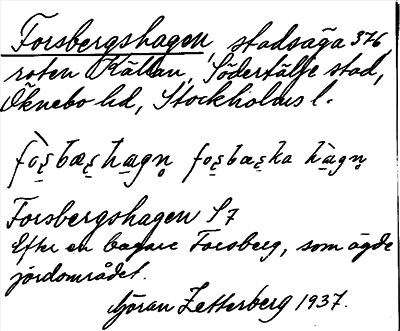 Forsbergshagen, stadsäga 376
roten Källan, Södertälje stad,
Öknebo hd, Stockholms l.
Forsbergshagen S 7
Efter en bagare Forsberg, som ägde
jordområdet.
Göran Zetterberg 1937.